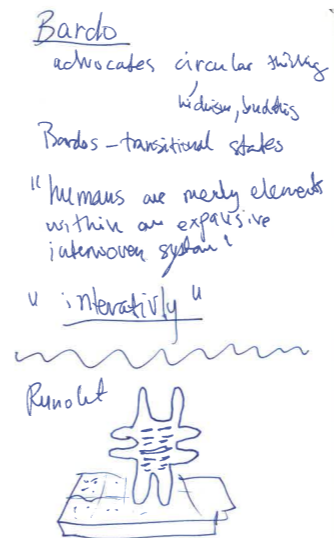 Bardo
advocates circular thinking
hiduism, buddhis
Bardos - transitional states
"humans are merly elements
within an expansive
interwoven system"
"interativly"